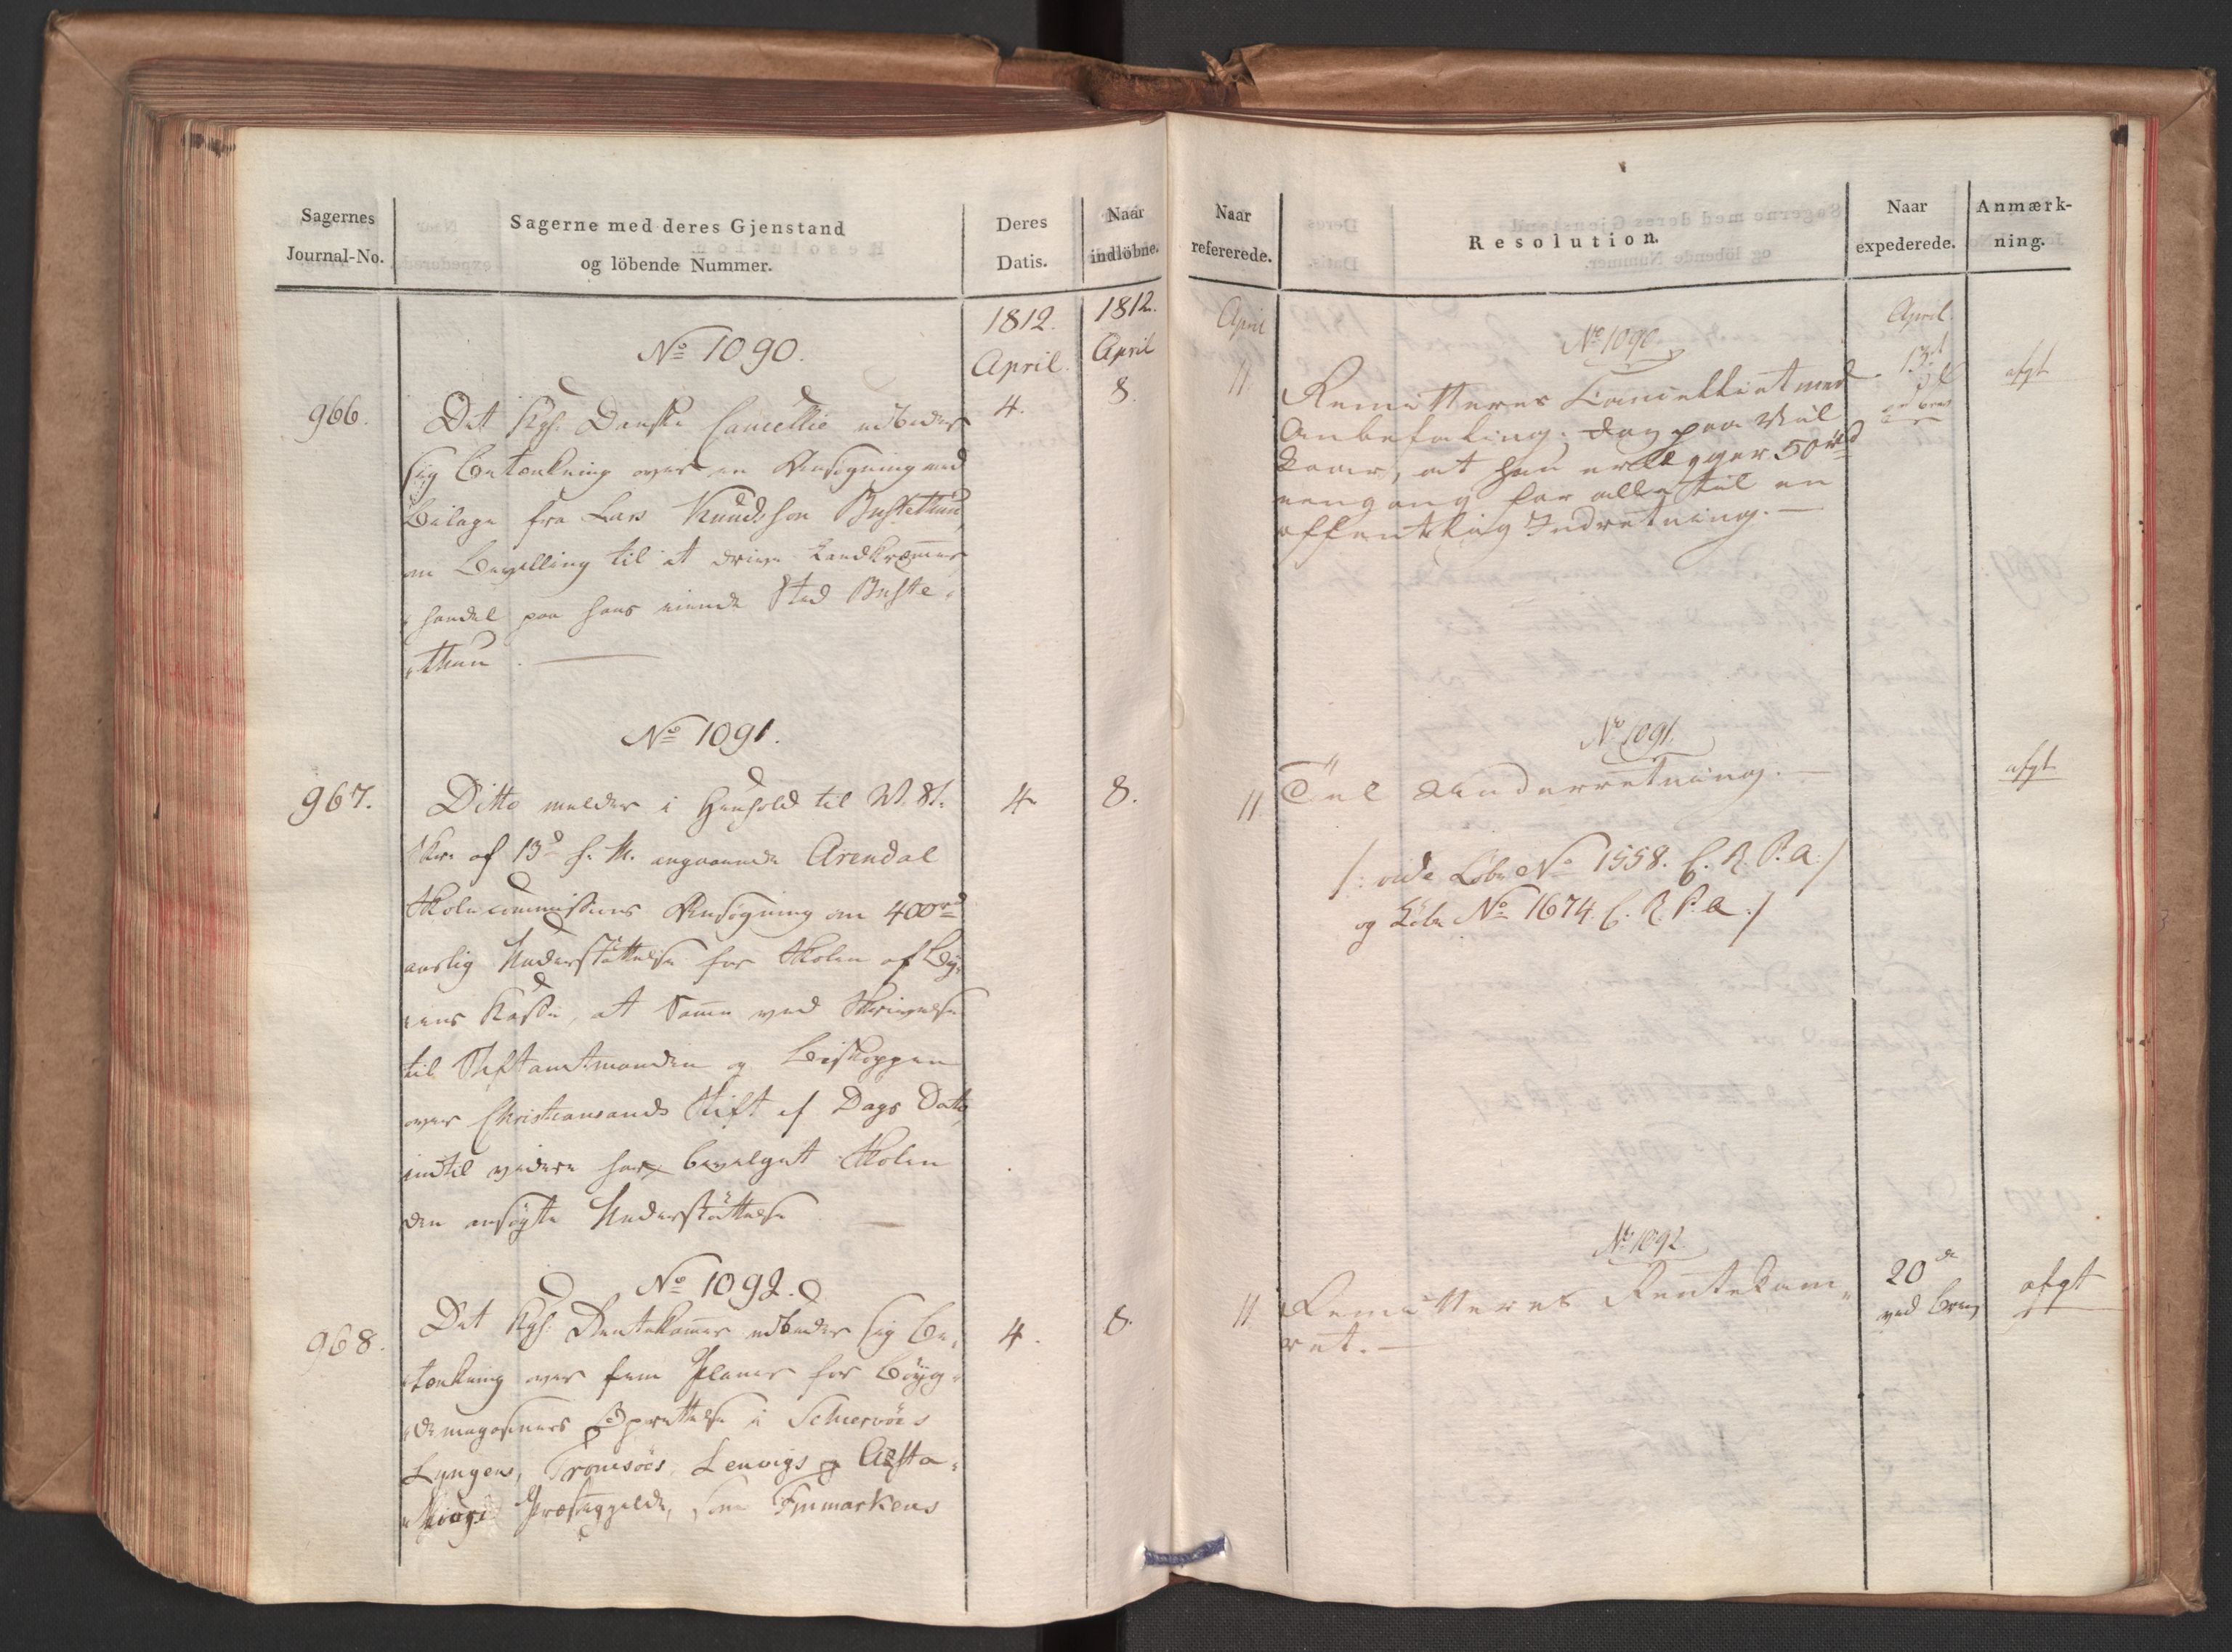 Sagernes
Journal-No.
Sagerne med deres Gjenstand
og löbende Nummer.
Deres
Datis.
Naar
indlöbne.
1812.
April.
1812.
April
No 1090.
966.
4.
8.
Det Kgl. Danske Cancellie udbeder
sig Betænkning over en Ansøgning med
Bilage fra Lars Knudsøn Bustethun
om Bevilling til at drive Landkræmmer
handel paa hans eiende Sted Buste
thun.
No 1091.
967.
4
8.
Ditto melder i Henhold til
Skr. af 13d f. M. angaaende Arendal
Skolecommissions Ansøgning om 400 rd
aarlig Understøttelse for Skolen af By
ens Kasse, at Samme ved Skrivelse
til Stiftamtmanden og Biskoppen
over Christiansands Stift af Dags Dato
indtil videre har bevilget Skolen
den ansøgte Understøttelse
No 1092.
968.
4.
8.
Det Kgl. Rentekammer udbeder sig Be
tænkning over fem Planer for Bøyg
demagasiners Oprettelse i Schiervöes
Lyngens, Tromsöes, Lenvigs og Aste
Præstegjelde, som Finmarkens
Naar
refererede.
Resolution.
Naar
expederede.
Anmærk-
ning.
April
11.
No 1090.
April.
13d
afgt
Remitteres Cancelliet med
Anbefaling: dog paa Vil
kaar, at han erlægger 50 rd
eengang for alle til en
offentlig Indretning.
No 1091.
11
Til Underretning.
afgt
/: vide Löbe No 1558. C. R. P. a. /
og Löbe No 1674. C. R. P. a. /
No 1092.
11
Remitteres Rentekam
ret.
20de
ved Brev
afgt